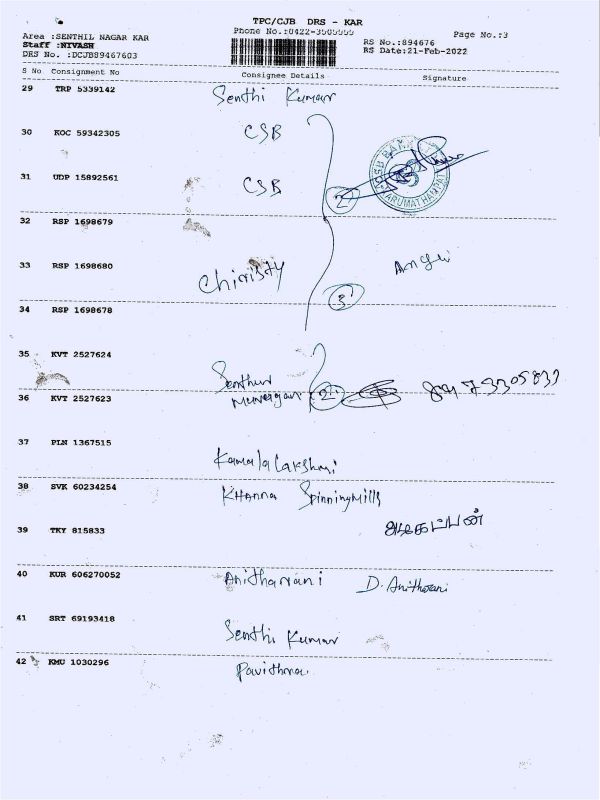 TPC/CJB DRS - KAR
Area :SENTHIL NAGAR KAR Phone No.:0422-3505555 Page No.:3
Staff :NIVASH RS No.:894676
DRS No. :DCJB89467603 RS Date:21-Feb-2022
S No Consignment No Consignee Details Signature
29 TRP 5339142 Senthi Kumar
30 KOC 59342305 CSB
31 UDP 15892561 CSB 2
CSB BANK
KARUMATHAMPATTI
32 RSP 1698679
33 RSP 1698680 Chiristy
3
34 RSP 1698678
35 KVT 2527624 Senthur
36 KVT 2527623 Murugan 2
37 PLN 1367515 Kamala Lakshmi
38 SVK 60234254 KHanna Spinning Mills
39 TKY 815833
40 KUR 606270052 Anitharani D. Anitharani
41 SRT 69193418 Senthi Kumar
42 KMU 1030296 Pavithra